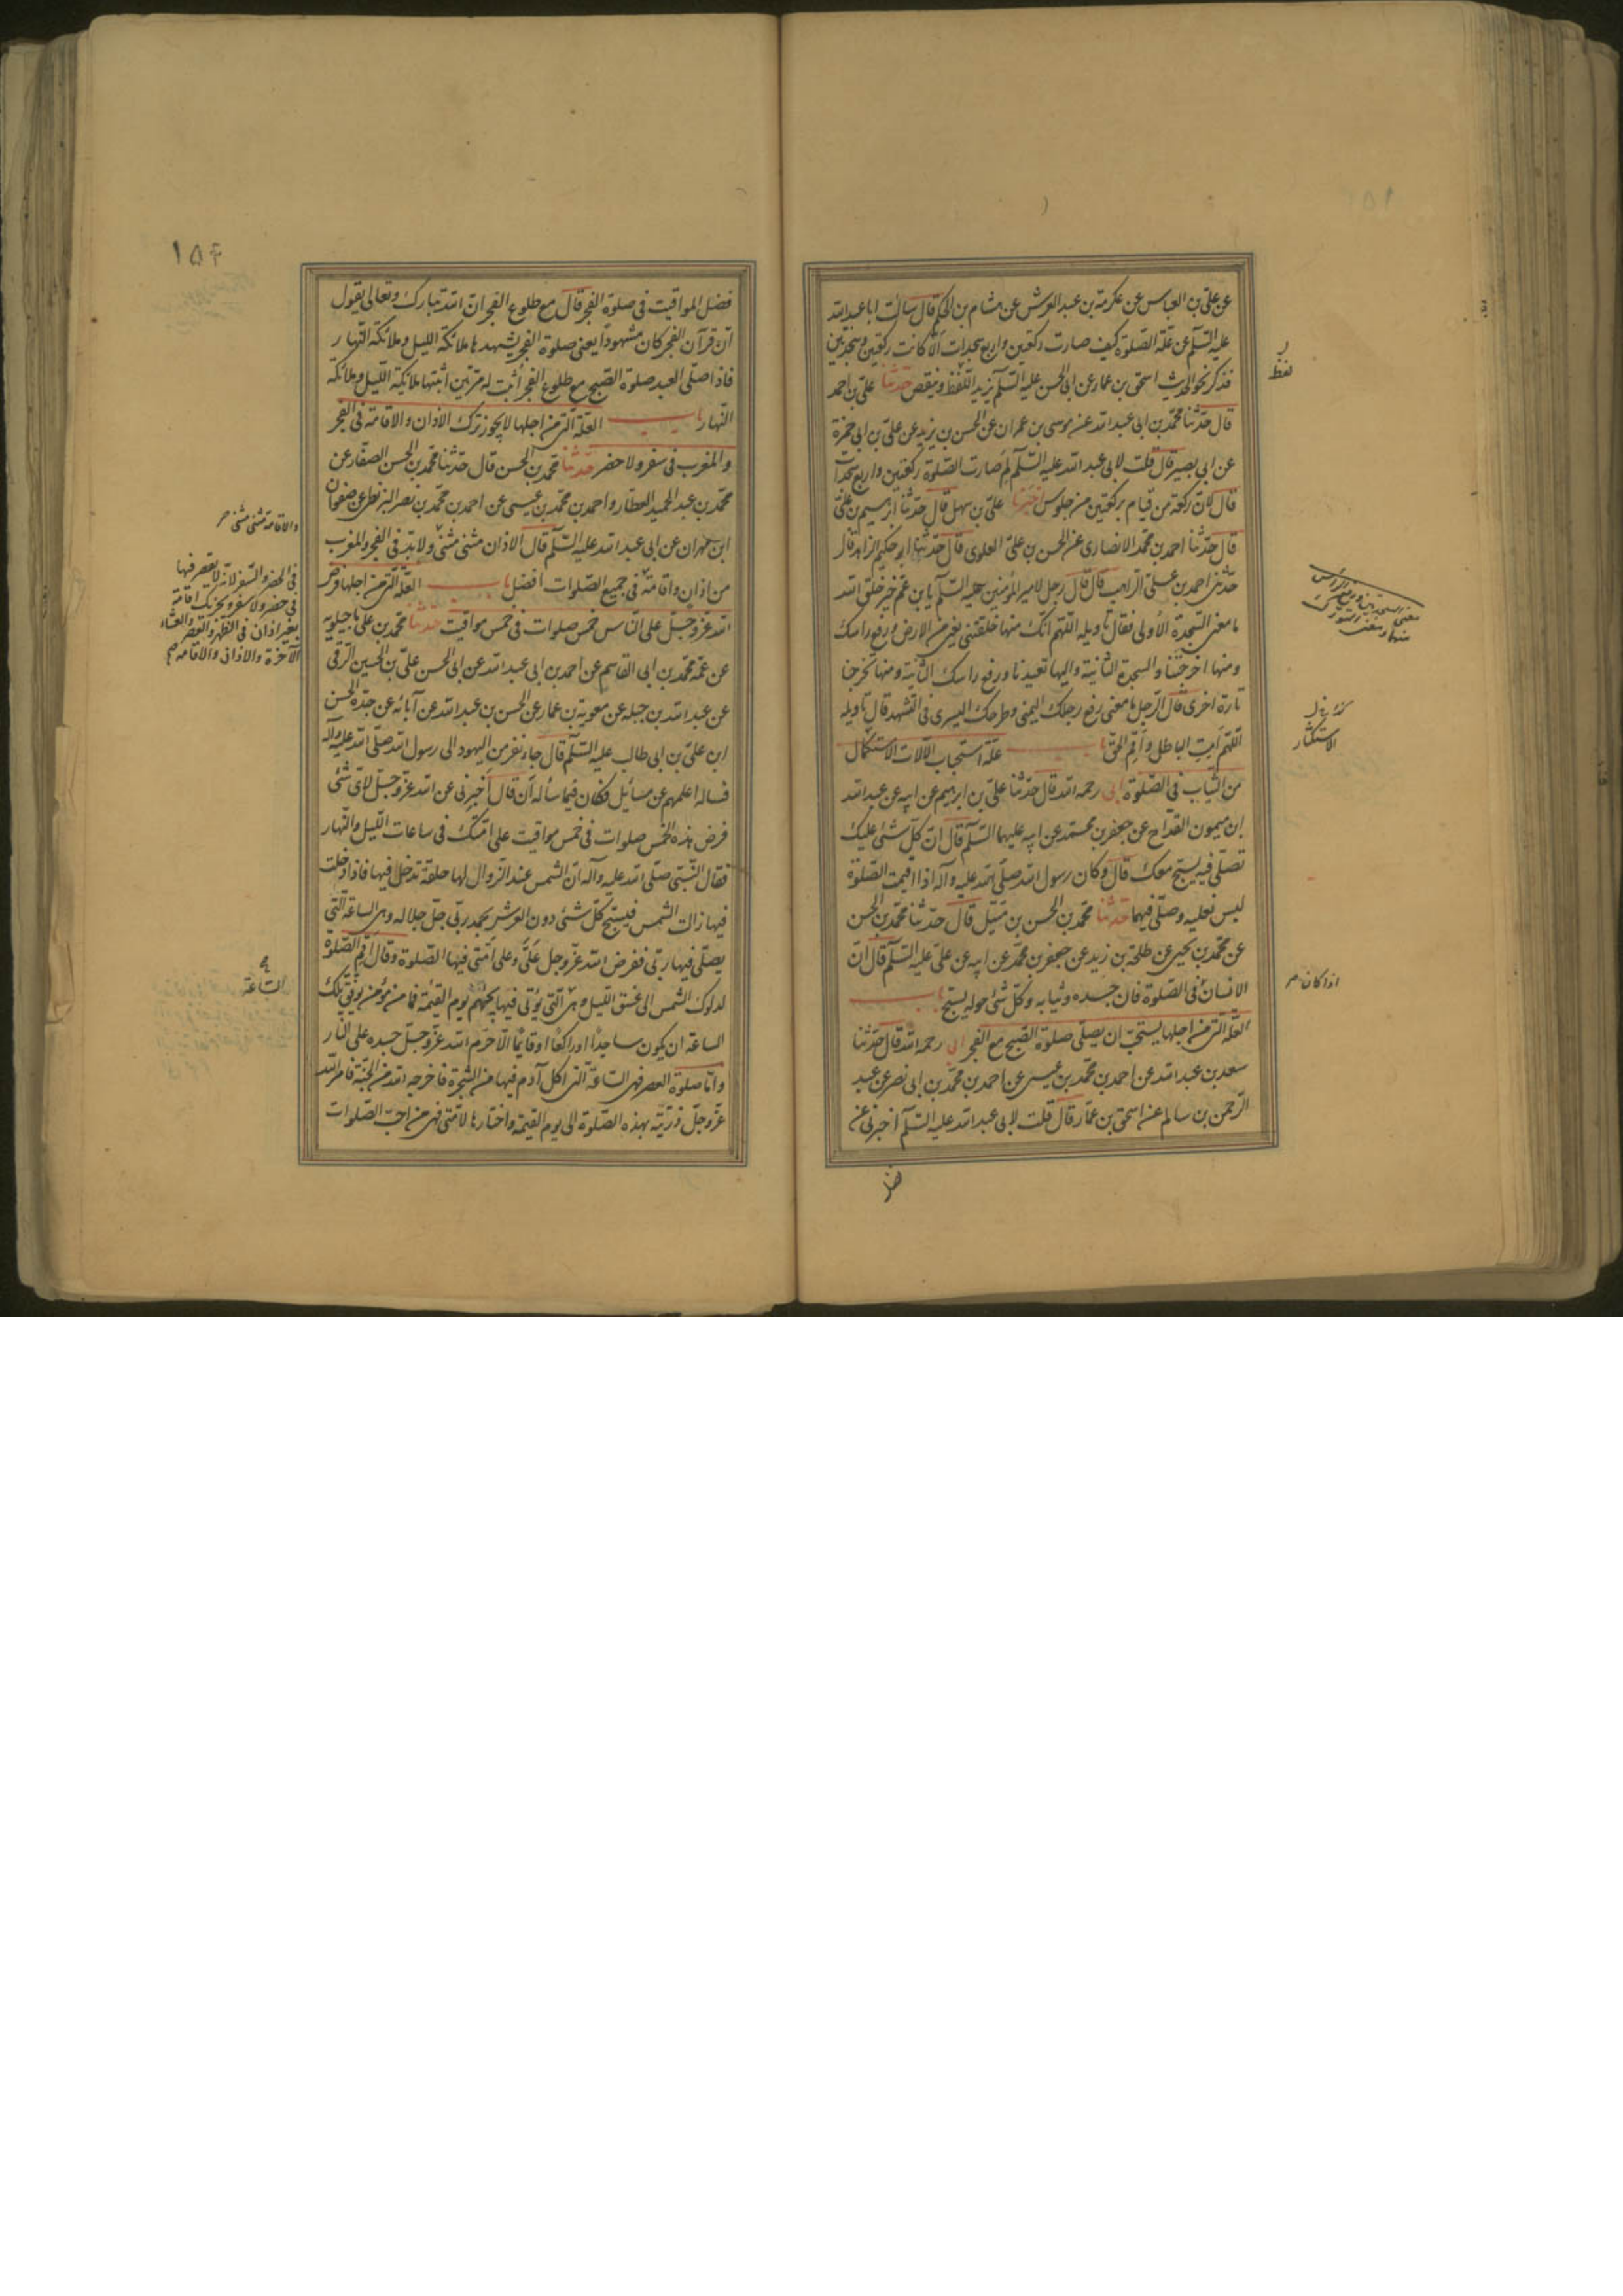 عن علىّ بن العباس عن عكرمة بن عبد العرش عن هشام بن الحكم قال سالت ابا عبد الله
عليه السّلم عن علّة الصّلوة كيف صارت ركعتين واربع سجدات الّا كانت ركعتين وسجدتين
فذكر نحو الحديث اسحق بن عمار عن ابى الحسن عليه السّلم يزيد اللّفظ وينقص حدّثنا علىّ بن احمد
قال حدّثنا محمّد بن ابى عبد الله عن موسى بن عمران عن الحسن بن يزيد عن علىّ بن ابى حمزة
عن ابى بصير قال قلت لابى عبد الله عليه السّلم لِمَ صارت الصّلوة ركعتين واربع سجدات
قال لانّ ركعة من قيام بركعتين من جلوس اخبرنا علىّ بن سهل قال حدّثنا ابرهيم بن علىّ
قال حدّثنا احمد بن محمّد الانصارى عن الحسن بن علىّ العلوى قال حدّثنا ابو حكيم الزاهد قال
حدّثنى احمد بن علىّ الراهب قال قال رجل لامير المؤمنين عليه السّلم يا بن عمّ خير خلق الله
ما معنى السّجدة الأولى فقال تاويله اللّهم انّك منها خلقتنى يعنى من الارض ورفع راسك
ومنها اخرجتنا والسجدة الثّانية واليها تعيدنا ورفع راسك الثّانية ومنها تخرجنا
تارة اخرى قال الرّجل ما معنى رفع رجلك اليمنى وطرحك اليسرى فى التّشهد قال تاويله
اللّهم اَمِتِ الباطل واَقِم الحقّ باب علّة استحباب الآلات الاستكمال
من الثّياب فى الصّلوة ابى رحمه الله قال حدّثنا علىّ بن ابرهيم عن ابيه عن عبد الله
ابن ميمون القدّاح عن جعفر بن محمّد عن ابيه عليهما السّلم قال انّ كلّ شئ عليك
تصلّى فيه يسبّح معك قال وكان رسول الله صلّى الله عليه وآله اذا اقيمت الصّلوة
لبس نعليه وصلّى فيهما حدّثنا محمّد بن الحسن بن متيل قال حدّثنا محمّد بن الحسن
عن محمّد بن يحيى عن طلحة بن زيد عن جعفر بن محمّد عن ابيه عن علىّ عليه السّلم قال انّ
الانسان فى الصّلوة فان جسده وثيابه وكلّ شئ حوله يسبّح باب
العلّة الّتى من اجلها يستحبّ ان يصلّى صلوة الصّبح مع الفجر ابى رحمه الله قال حدّثنا
سعد بن عبد الله عن احمد بن محمّد بن عيسى عن احمد بن محمّد بن ابى نصر عن عبد
الرّحمن بن سالم عن اسحق بن عمّار قال قلت لابى عبد الله عليه السّلم اخبرنى عن
لفظ
الاستكثار
اذا كان
فضل
١٥۴
فضل المواقيت فى صلوة الفجر قال مع طلوع الفجر انّ الله تبارك وتعالى يقول
انّ قرآن الفجر كان مشهوداً يعنى صلوة الفجر يشهدها ملائكة الليل وملائكة النّهار
فاذا صلّى العبد صلوة الصّبح مع طلوع الفجر أثبت له مرّتين اثبتها ملائكة اللّيل وملائكة
النّهار باب العلّة الّتى من اجلها لا يجوز ترك الاذان والاقامة فى الفجر
والمغرب فى سفر ولا حضر حدّثنا محمّد بن الحسن قال حدّثنا محمّد بن الحسن الصفّار عن
محمّد بن عبد الحميد العطّار واحمد بن محمّد بن عيسى عن احمد بن محمّد بن نصر البزنطى عن صفوان
ابن مهران عن ابى عبد الله عليه السّلم قال الاذان مثنى مثنى ولا بدّ فى الفجر والمغرب
من اذان واقامة فى جميع الصّلوات افضل باب العلّة الّتى من اجلها فرض
الله عزّ وجلّ على النّاس خمس صلوات فى خمس مواقيت حدّثنا محمّد بن على ماجيلويه
عن عمّه محمّد بن ابى القاسم عن احمد بن ابى عبد الله عن ابى الحسن علىّ بن الحسين الرّقى
عن عبد الله بن جبله عن معوية بن عمّار عن الحسن بن عبد الله عن آبائه عن جدّه الحسن
ابن علىّ بن ابى طالب عليه السّلم قال جاء نفر من اليهود الى رسول الله صلّى الله عليه وآله
فساله اعلمهم عن مسائل فكان فيما سأله أن قال اَخبِرنى عن الله عزّ وجلّ لاىّ شئ
فرض هذه الخمس صلوات فى خمس مواقيت على امّتك فى ساعات اللّيل والنّهار
فقال النّبىّ صلّى الله عليه وآله انّ الشّمس عند الزّوال لها حلقة تدخل فيها فاذا دخلت
فيها زالت الشّمس فيسبّح كلّ شئ دون العرش بحمد ربّى جلّ جلاله وهى الساعة الّتى
يصلّى فيها ربّى ففرض الله عزّ وجل عَلَىَّ وعلى اُمّتى فيها الصّلوة وقال اَقِمِ الصّلوة
لدلوك الشمس الى غسق اللّيل وهى الّتى يؤتى فيها بجهنّم يوم القيمة فما من مؤمن يوفّق تلك
الساعة ان يكون ساجداً او راكعاً او قائماً الّا حرّم الله عزّ وجلّ جسده على النّار
وامّا صلوة العصر فهى السّاعة الّتى اكل آدم فيها من الشّجرة فاخرجه الله من الجنّة فامر الله
عزّ وجلّ ذرّيّته بهذه الصّلوة الى يوم القيمة واختارها لامّتى فهى من احبّ الصّلوات
والاقامة مثنى مثنى
فى الحضر والسّفر لانّه لا يقصر فيها
فى حضر ولا سفر ويجزيك اقامة
بغير اذان فى الظّهر والعصر والعشاء
الآخرة والاذان والاقامة
السّاعة